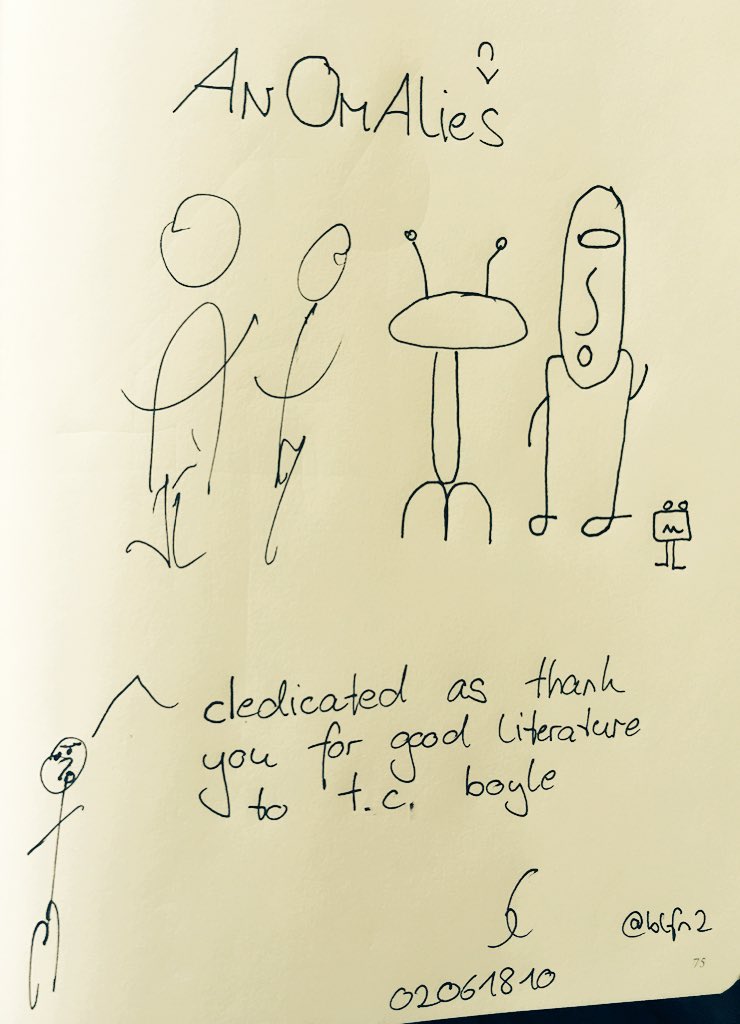 AnOmAlies
dedicated as thank
you for good literature
to t.c. boyle
02061810
75